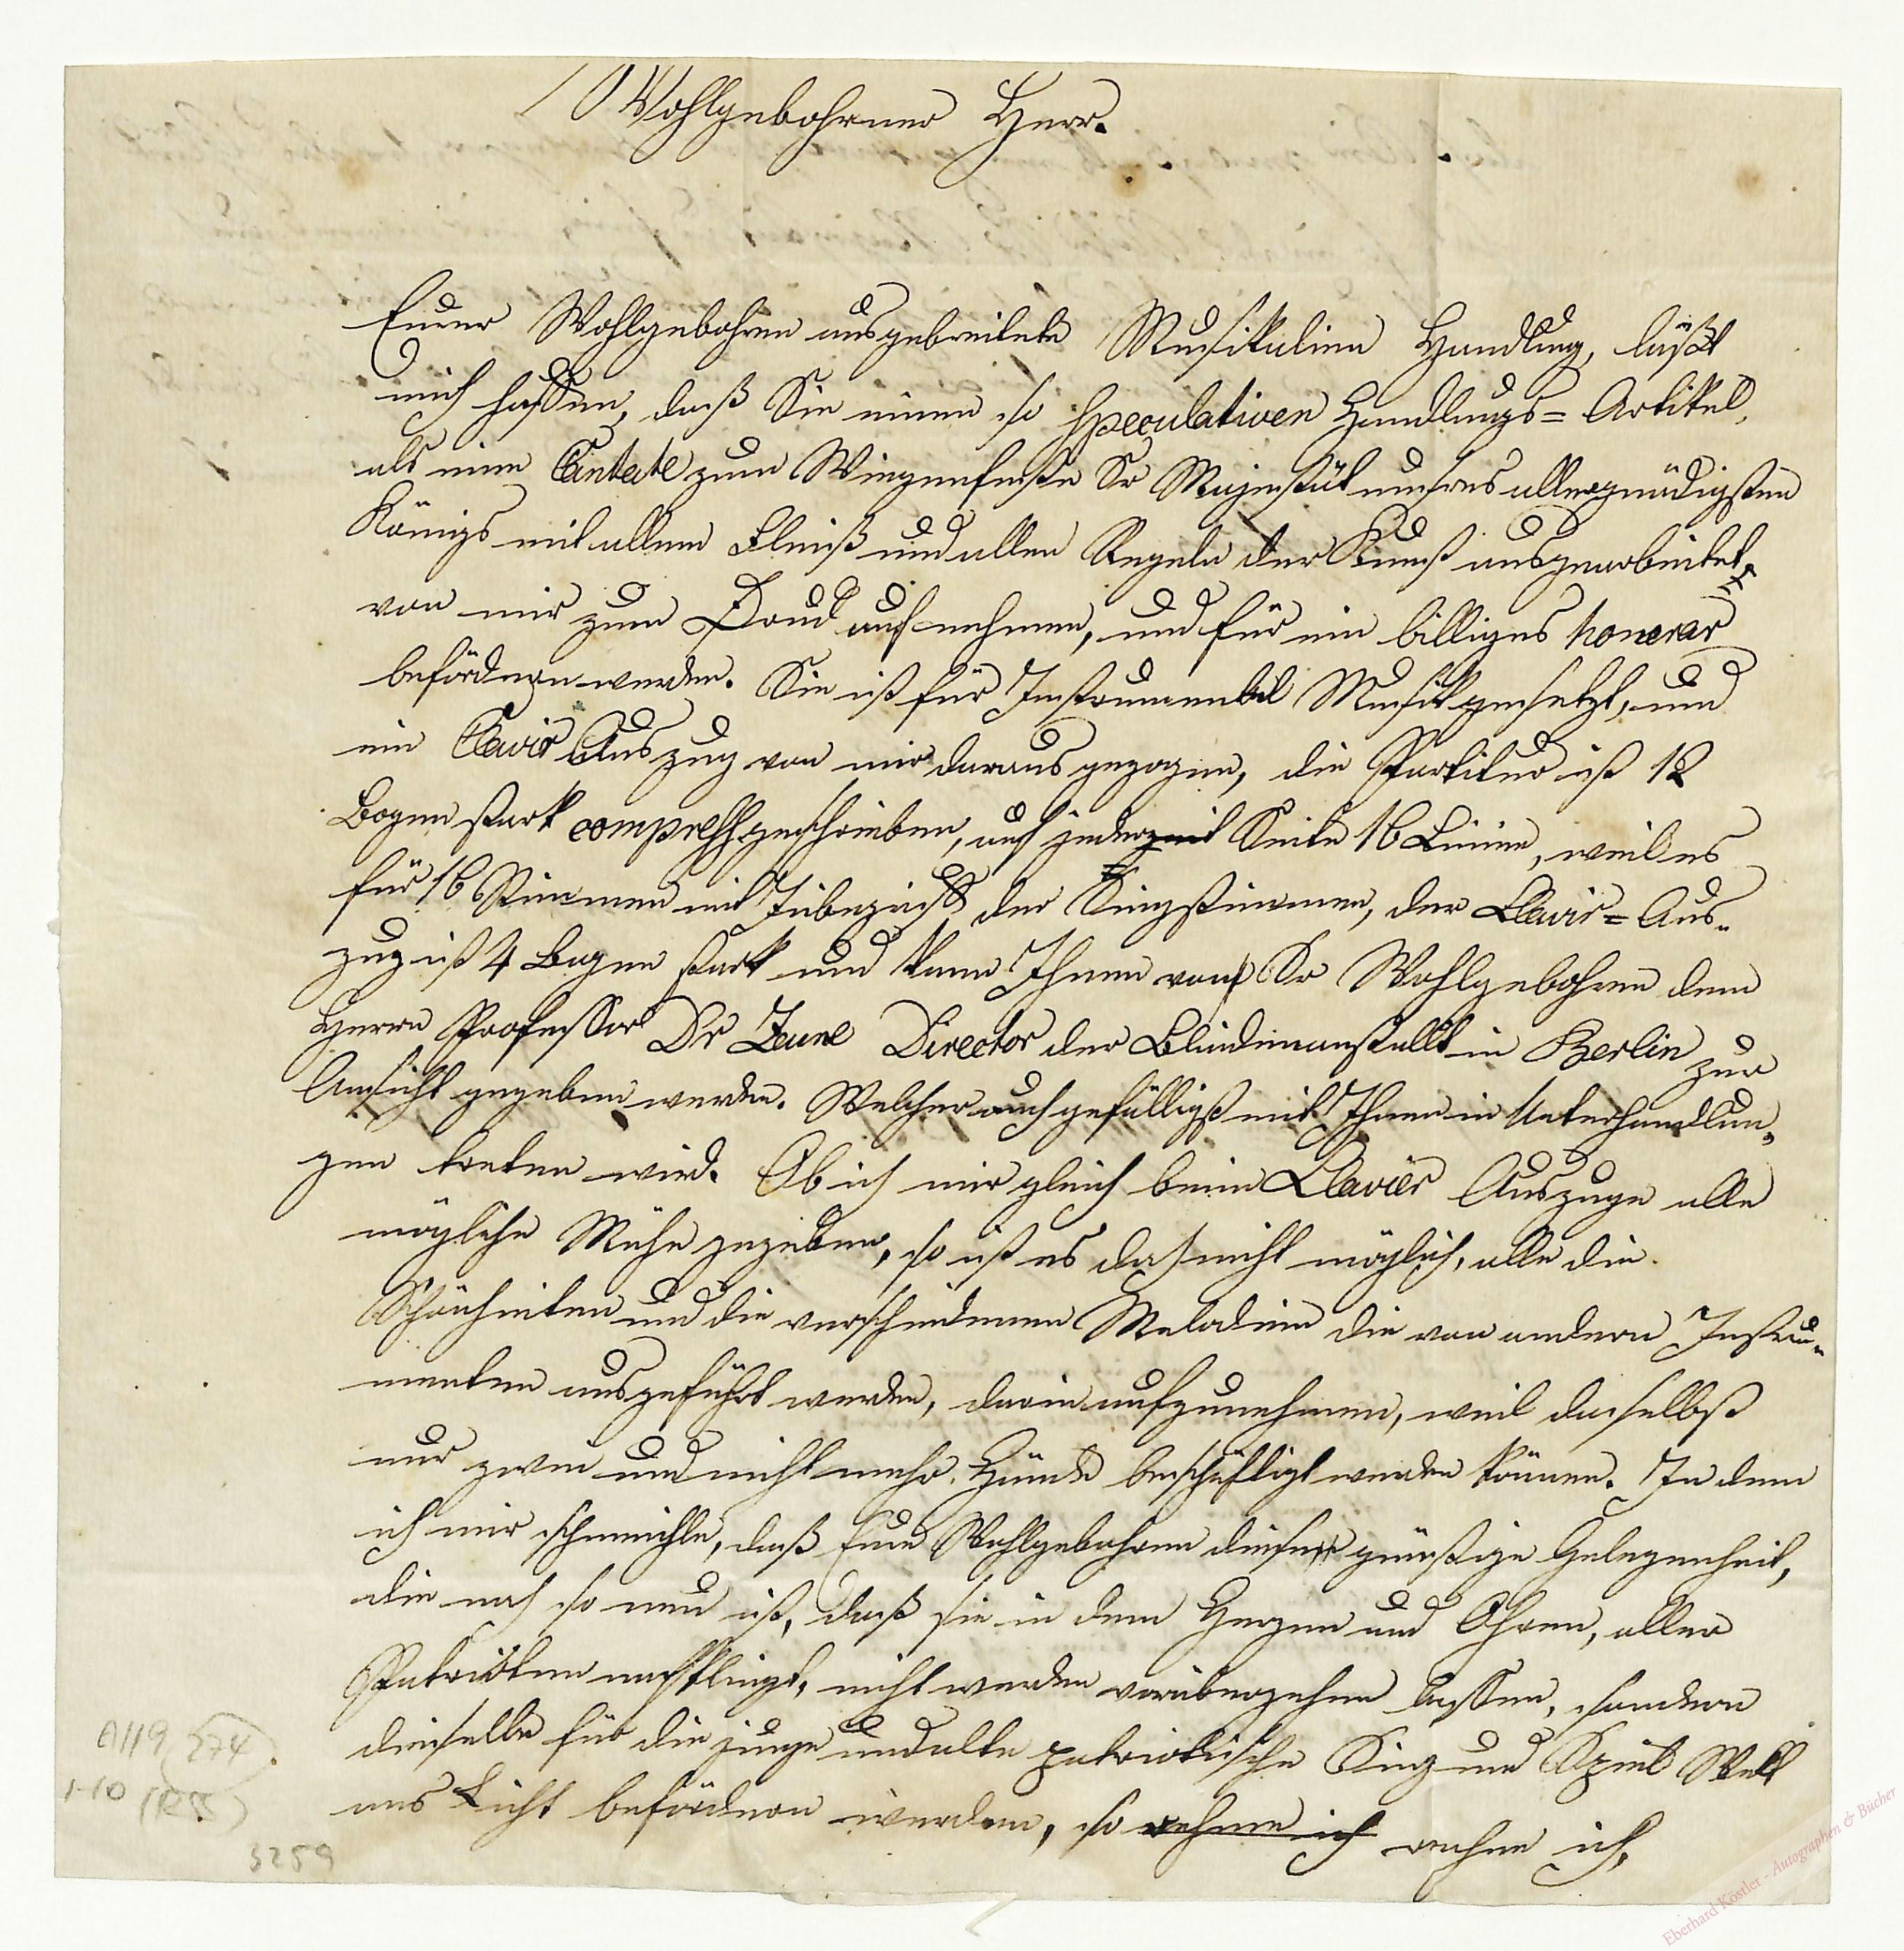 Wohlgebohrner Herr.
Eurer Wohlgebohren ausgebreitete Musikalien Handlung, läßt
mich hoffen, daß Sie einen so speculativen Handlungs= Artikel,
als eine Cantate zum Wiegenfeste Sr Majestät unsres allergnädigsten
Königs mit allem Fleiß und allen Regeln der Kunst ausgearbeitet,
von mir zum Druck aufnehmen, und für ein billiges honorar
befördern werden. Sie ist für Instrumental Musik gesetzt, und
ein Clavir Auszug von mir daraus gezogen, die Partitur ist 12
Bogen stark compress geschrieben, auf jeder Seite 16 Linien, weil es
für 16 Stimmen mit Inbegriff der Singstimmen, der Clavir= Aus-
zug ist 4 Bogen stark und kann Ihnen von Sr Wohlgebohren dem
Herrn Professor Dr Zeune Director der Blindenanstallt in Berlin zur
Ansicht gegeben werden. Welcher auch gefälligst mit Ihnen in Unterhandlun-
gen treten wird. Ob ich mir gleich beim Clavier Auszuge alle
mögliche Mühe gegeben, so ist es doch nicht möglich, alle die
Schönheiten und die verschiedenen Melodien die von andern Instru-
menten ausgeführt werden, darin aufzunehmen, weil daselbst
nur zwei und nicht mehr Hände beschäftigt werden können. In dem
ich mir schmeichle, daß Eure Wohlgebohren diese günstige Gelegenheit,
die noch so neu ist, daß sie in dem Herzen und Ohren, aller
Patrioten nachklingt, nicht werden vorübergehen lassen, sondern
dieselbe für die junge und alte patriotische Sing und Spiel Welt
ans Licht befördern werden, so nehme ich nehme ich,
A119 274
1-10 (RS)
3259
Eberhard Köstler - Autographen & Bücher